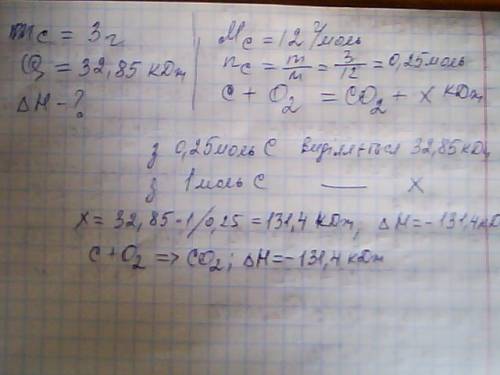 mc = 3 г
Q = 32,85 кДж
ΔH - ?
Mc = 12 г/моль
nc = m/M = 3/12 = 0,25 моль
C + O₂ = CO₂ + x кДж
з 0,25 моль C виділяється 32,85 кДж
з 1 моль C — x
x = 32,85·1/0,25 = 131,4 кДж, ΔH = -131,4 кД
C + O₂ => CO₂; ΔH = -131,4 кДж